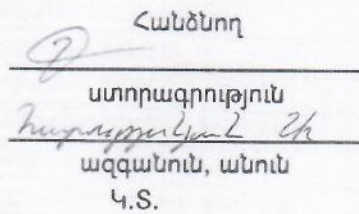 Հանձնող
ստորագրություն
ազգանուն, անուն
Կ.Տ.